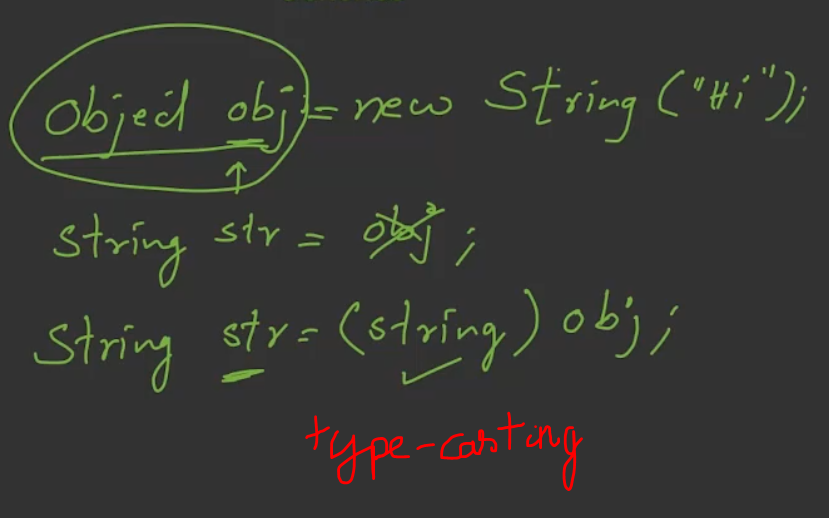 Object obj = new String ("Hi");
String str = obj;
String str = (string) obj;
type-casting